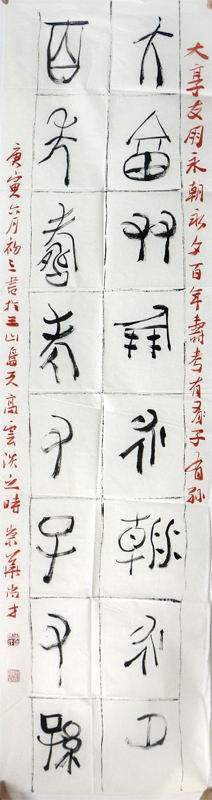 大享友用永朝永夕百年壽考有子有孙
大享友用永朝永夕
百年壽考又子又孫
庚寅六月初三書於三山島天高雲淡之時